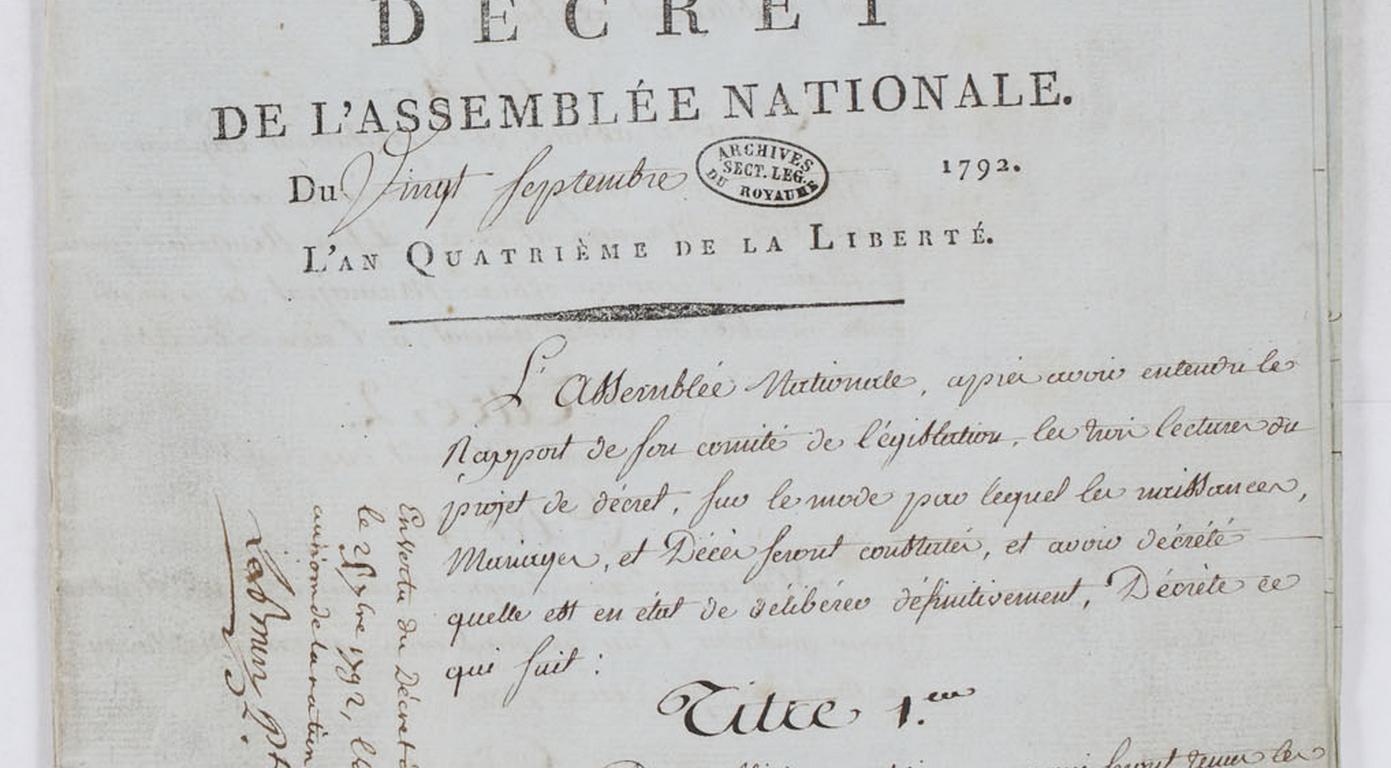 DÉCRET
DE L'ASSEMBLÉE NATIONALE.
Du Vingt Septembre 1792.
ARCHIVES
SECT. LEG.
DU ROYAUME
L'AN QUATRIÈME DE LA LIBERTÉ.
L'Assemblée Nationale, après avoir entendu le
Rapport de son comité de législation, les trois lectures du
projet de décret, sur le mode par lequel les naissances,
Mariages, et Décès seront constatés, et avoir décrété
quelle est en état de délibérer définitivement, Décrète ce
qui suit :
Titre 1.er
seront tenus les
En vertu du Décret
le 25 7bre 1792,
au nom de la nation